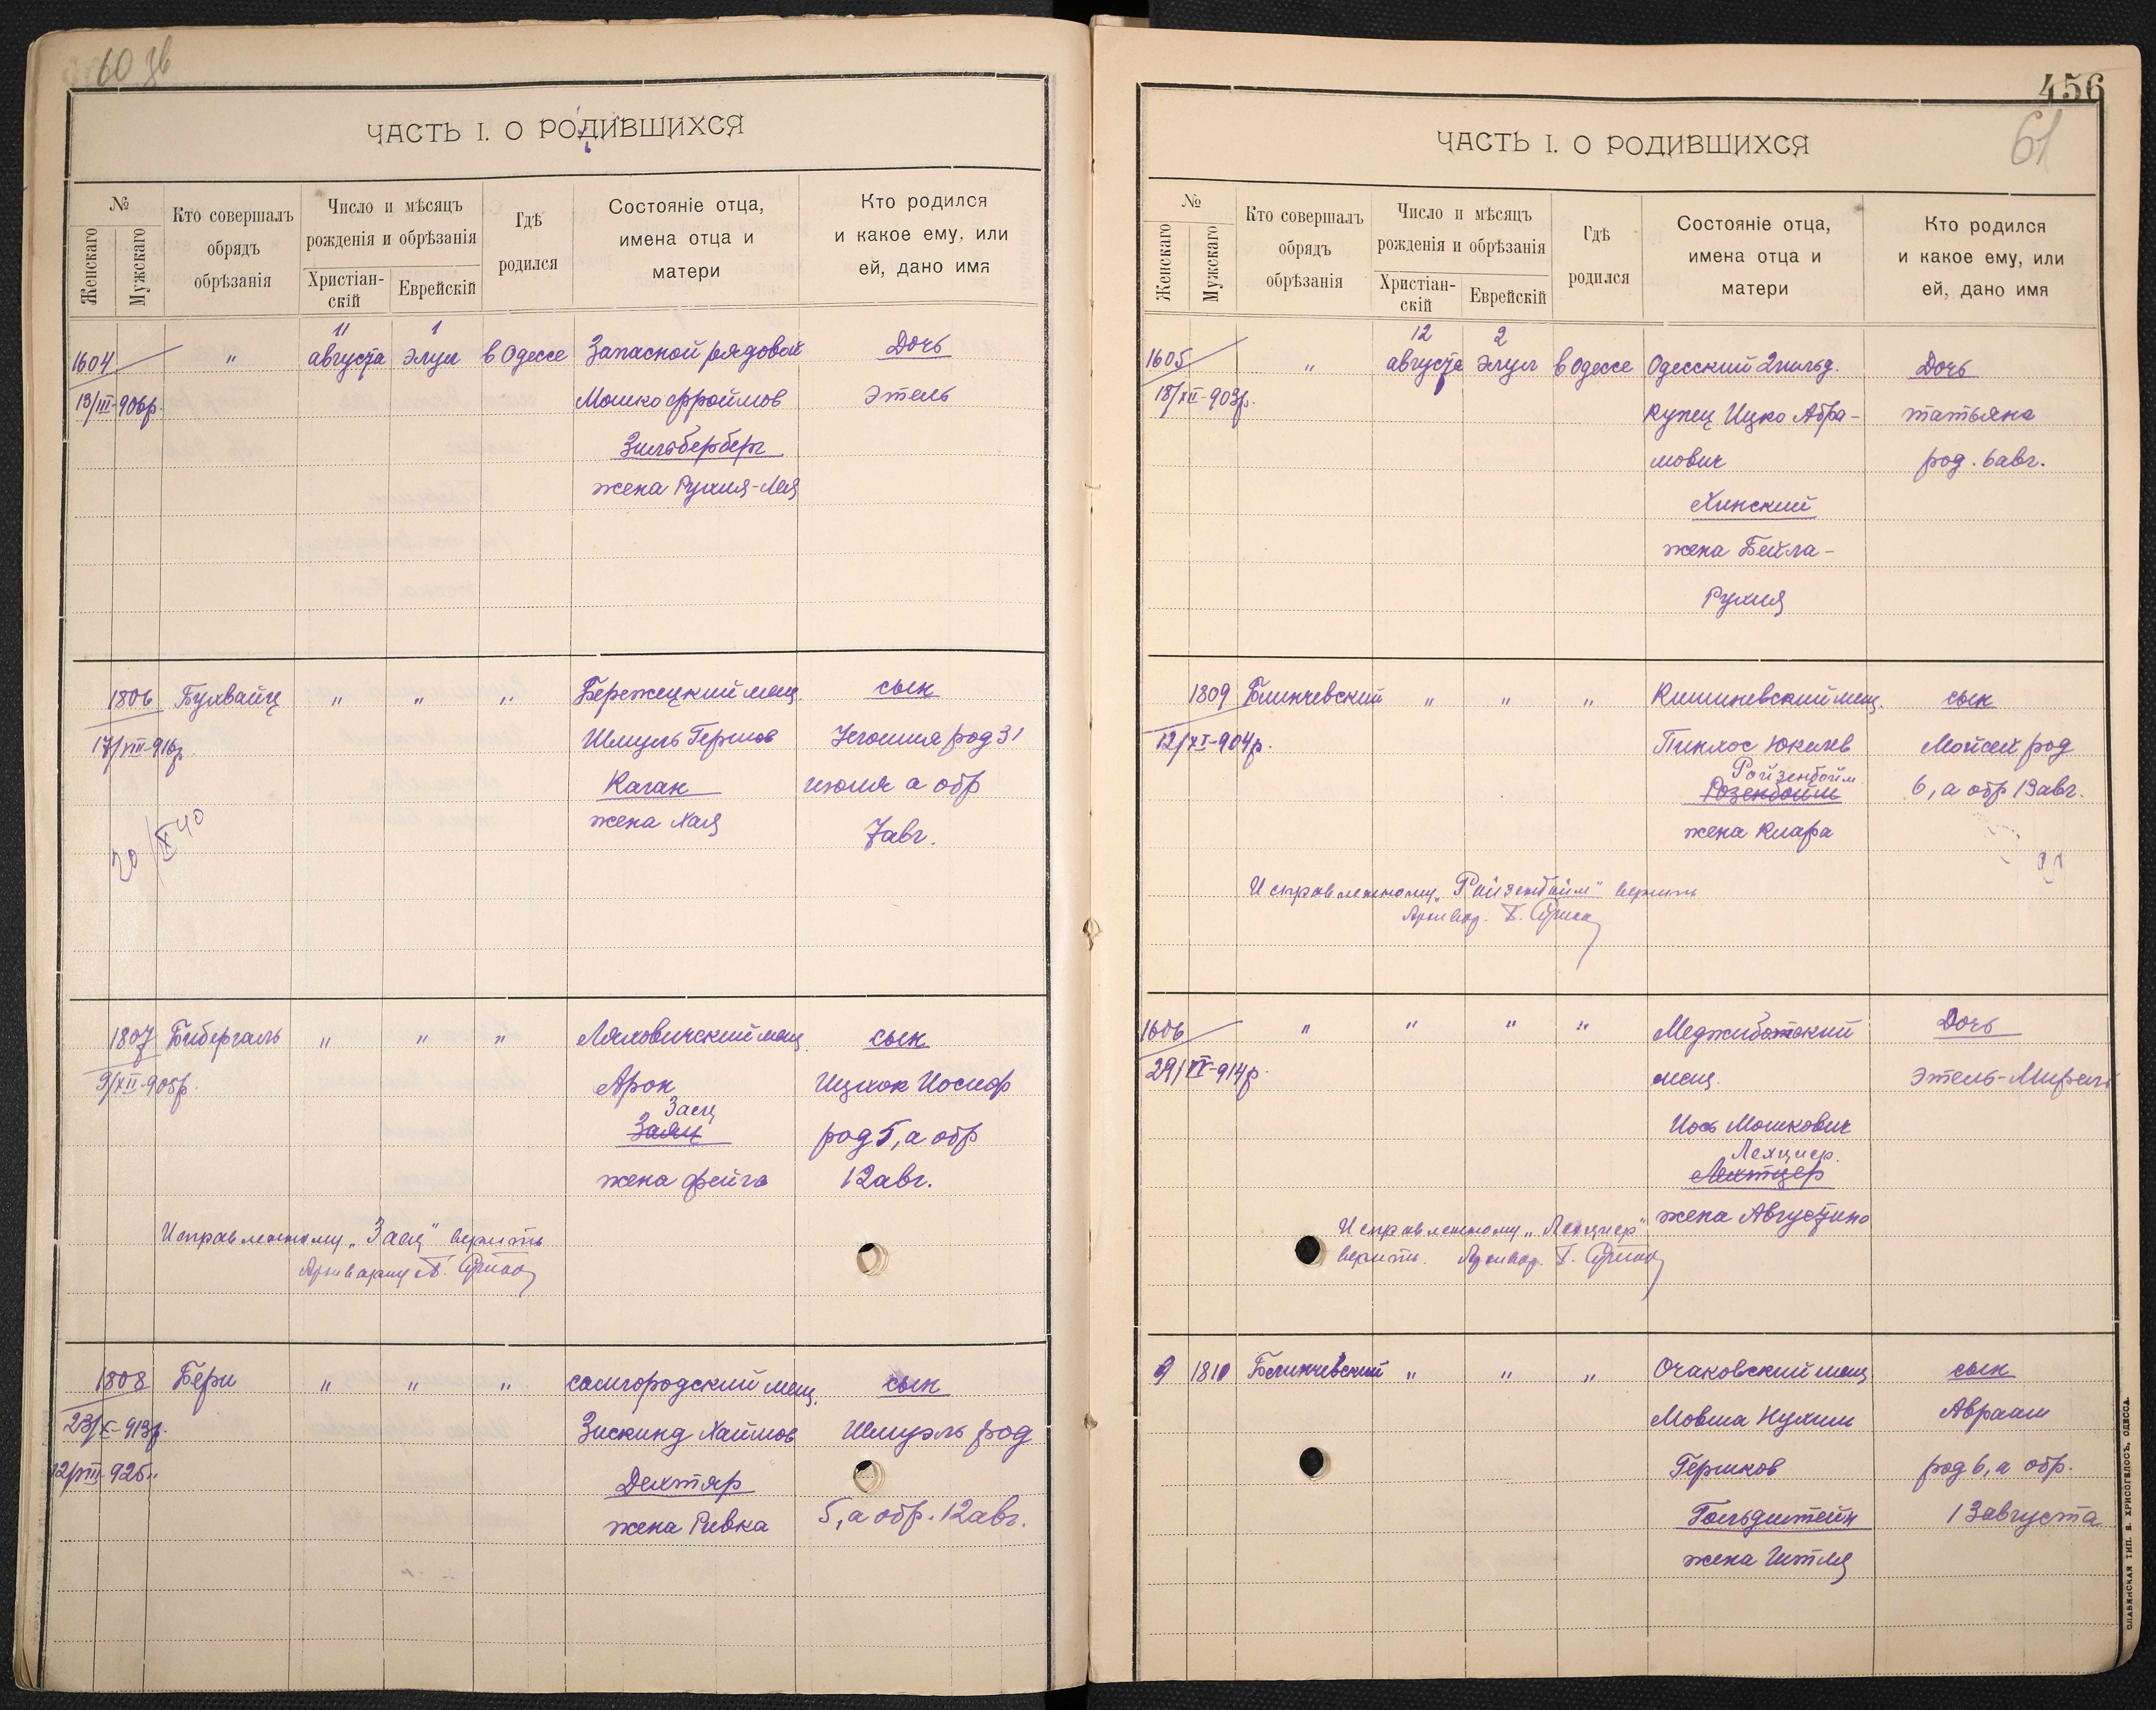 60 зв
ЧАСТЬ I. О РОДИВШИХСЯ
№
Женскаго
Мужскаго
Кто совершалъ
обрядъ
обрѣзанія
Число и мѣсяцъ
рожденія и обрѣзанія
Христіан-
скій
Еврейскій
Гдѣ
родился
Состояніе отца,
имена отца и
матери
Кто родился
и какое ему, или
ей, дано имя
11 1
1604 " августа элул в Одессе Запасной рядовой Дочь
13/III-906р. Мошко Фроимов Этель
Зильберберг
жена Рухля-Лея
1806 Бухвайц " " " Бережецкий мещ. сын
17/VIII-916р. Шмуль Гершов Иегошия род 31
Каган июля а обр
жена Хая 7 авг.
20/X 40
1807 Бибергаль " " " Ляховичский мещ. сын
9/XII-905р. Арон Ицхок Иосиф
Заец
Заяц род 5, а обр
жена Фейга 12 авг.
Исправленному „Заец" верить
Архивариус
1808 Бери " " " самгородский мещ. сын
23/X-913р. Зискинд Хаимов Шмуэль род
12/VIII-925 " Дехтяр
жена Ривка 5, а обр. 12 авг.
456
61
ЧАСТЬ I. О РОДИВШИХСЯ
№
Женскаго
Мужскаго
Кто совершалъ
обрядъ
обрѣзанія
Число и мѣсяцъ
рожденія и обрѣзанія
Христіан-
скій
Еврейскій
Гдѣ
родился
Состояніе отца,
имена отца и
матери
Кто родился
и какое ему, или
ей, дано имя
12 2
1605 " августа элул в Одессе Одесский 2 гильд. Дочь
18/XII-903р. купец Ицко Абра- Татьяна
мович род. 6 авг.
Хинский
жена Бейла-
Рухля
1809 Блинчевский " " " Кишиневский мещ. сын
12/XI-904р. Пинхос Юкелев Мойсей род
Ройзенбойм
Розенбойм 6, а обр 13 авг.
жена Клара
Исправленному „Ройзенбойм" верить
Архивар.
1606 " " " " Меджибожский Дочь
29/IV-914р. мещ. Этель-Мирель
Иось Мошкович
Лехциер.
Лехтцер
жена Августина
Исправленному „Лехциер"
верить. Архивар.
9 1810 Блинчевский " " " Очаковский мещ. сын
Мовша Нухим Авраам
Гершков род 6, а обр.
Гольдштейн 13 августа
жена Шттля
СЛАВЯНСКАЯ ТИП. Н. ХРИСОГЕЛОСЪ, ОДЕССА.